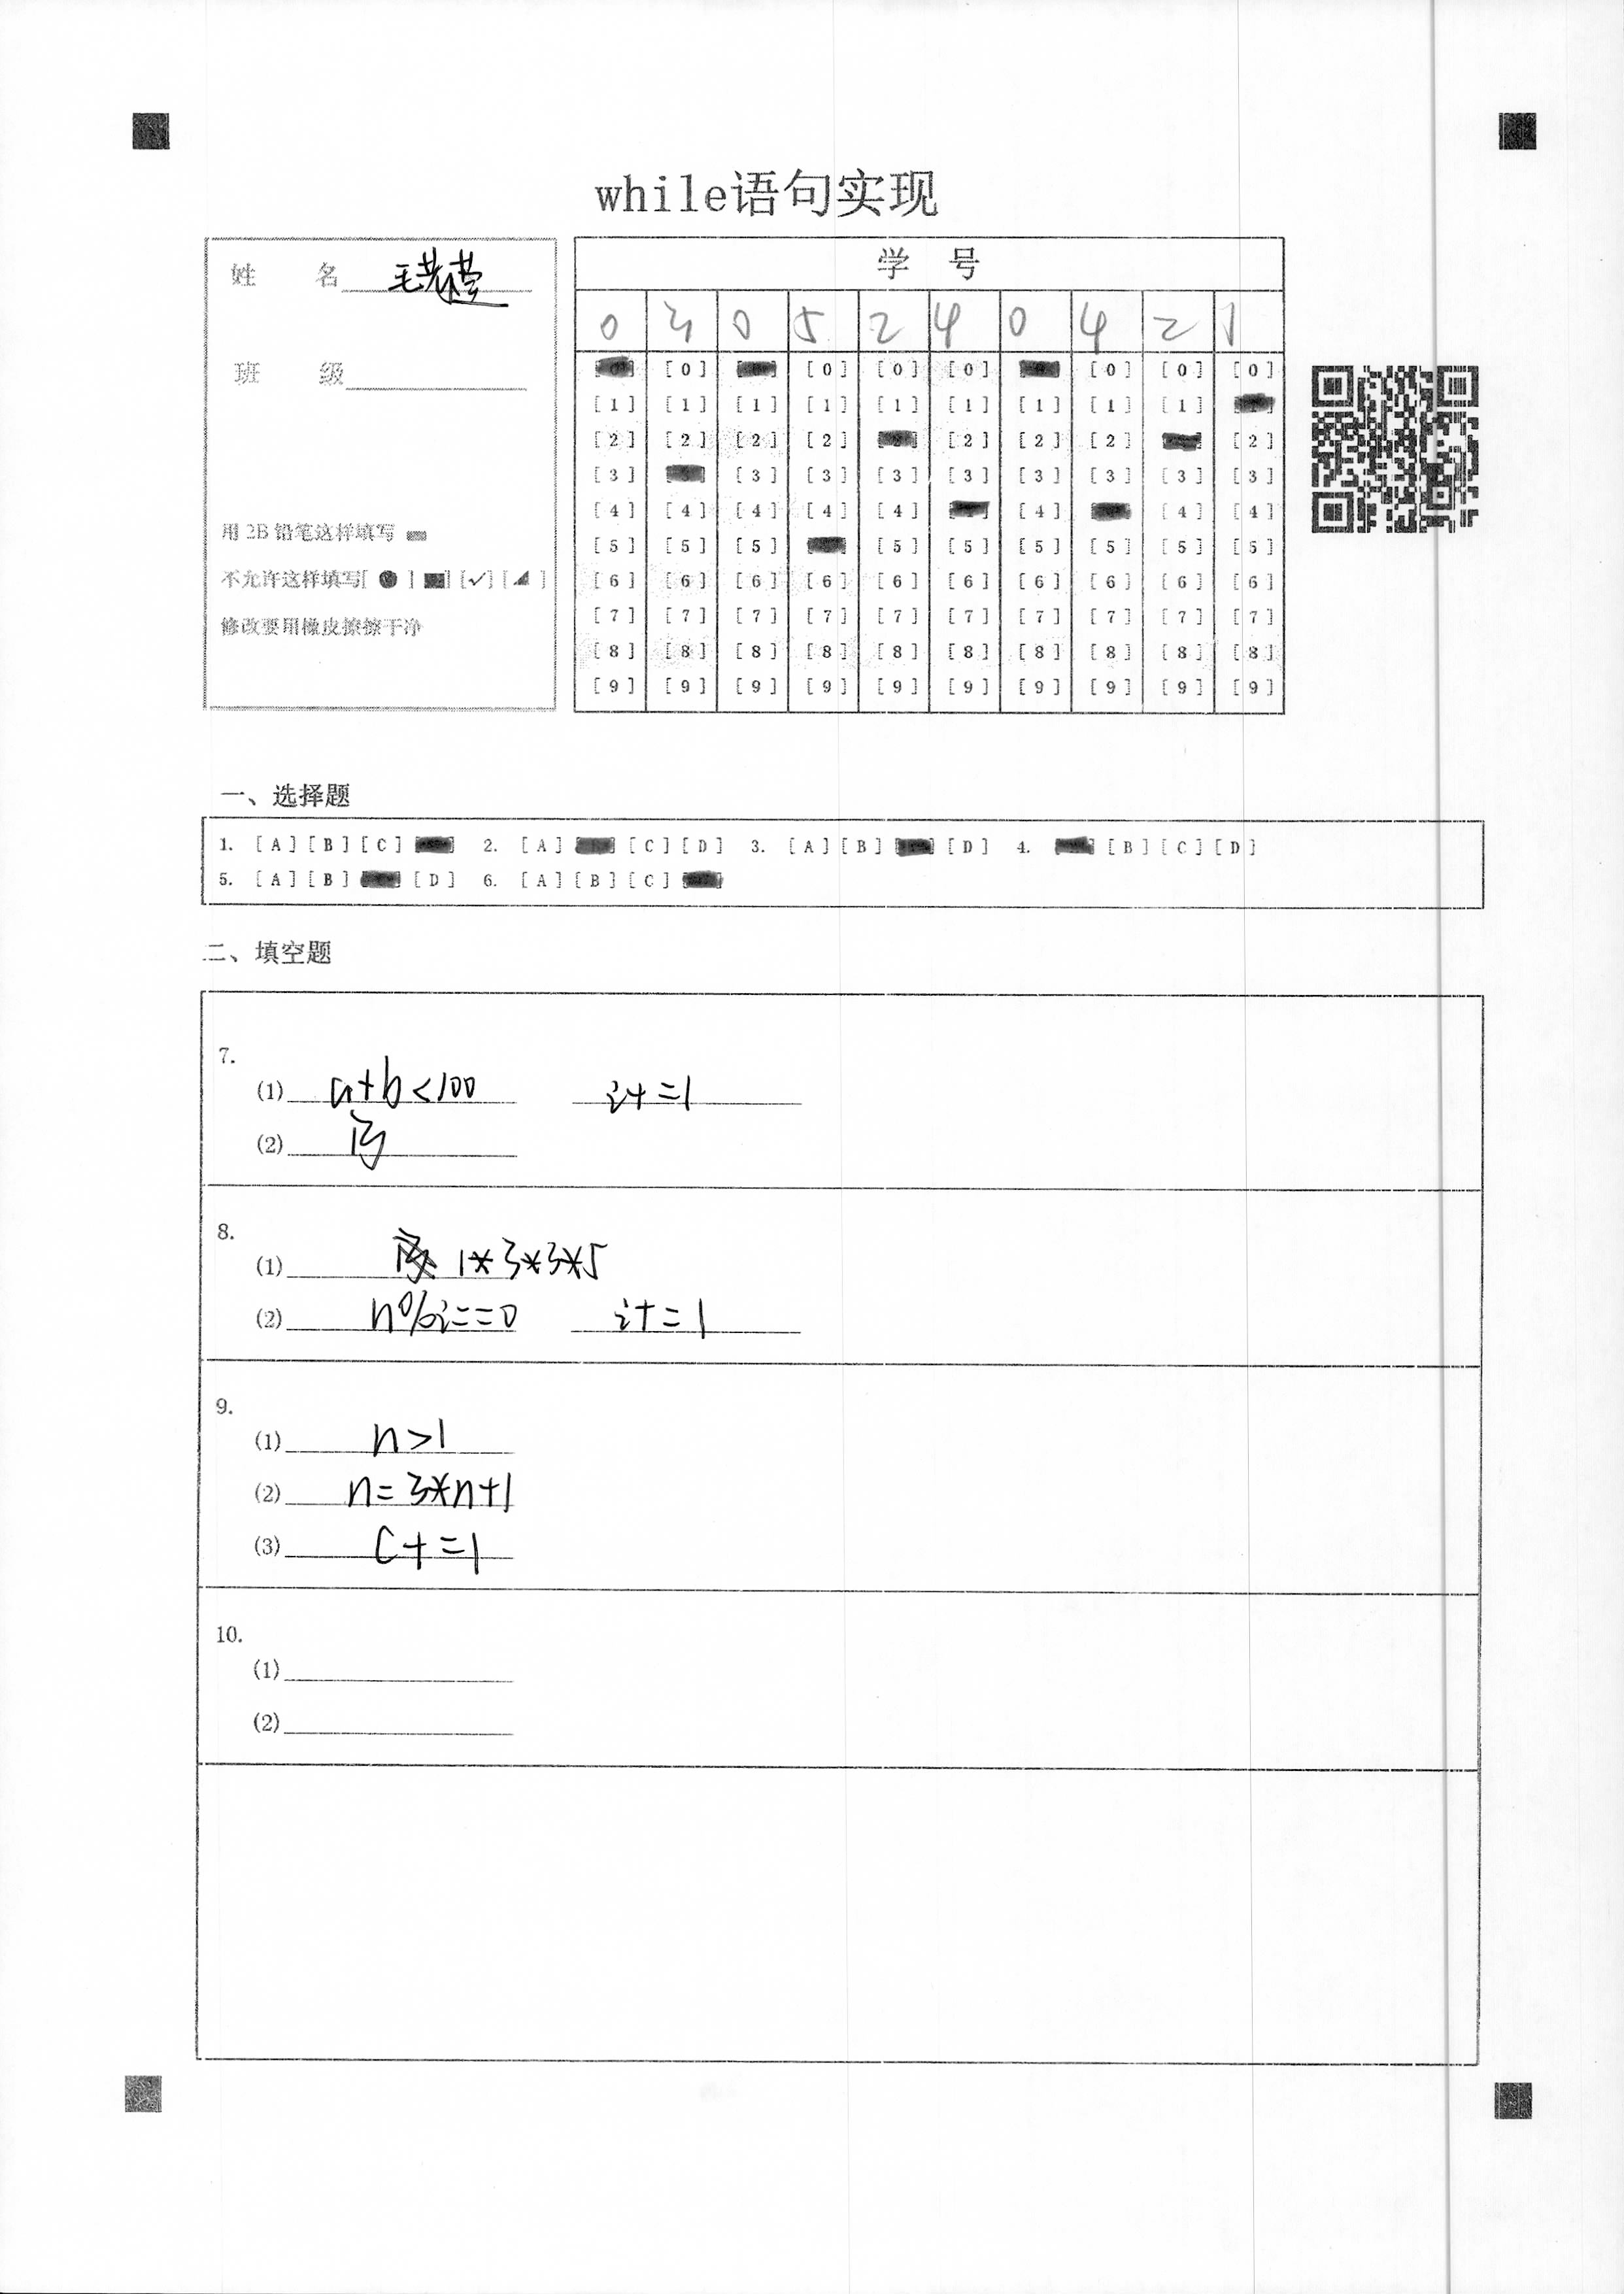 while语句实现
姓 名
班 级
用 2B 铅笔这样填写
不允许这样填写[ ● ] ■] [✓] [ ]
修改要用橡皮擦擦干净
学 号
0 3 0 5 2 4 0 4 2 1
[0] [0] [0] [0] [0] [0] [0]
[1] [1] [1] [1] [1] [1] [1] [1] [1]
[2] [2] [2] [2] [2] [2] [2] [2]
[3] [3] [3] [3] [3] [3] [3] [3] [3]
[4] [4] [4] [4] [4] [4] [4] [4]
[5] [5] [5] [5] [5] [5] [5] [5] [5]
[6] [6] [6] [6] [6] [6] [6] [6] [6] [6]
[7] [7] [7] [7] [7] [7] [7] [7] [7] [7]
[8] [8] [8] [8] [8] [8] [8] [8] [8] [8]
[9] [9] [9] [9] [9] [9] [9] [9] [9] [9]
一、选择题
1. [A] [B] [C] 2. [A] [C] [D] 3. [A] [B] [D] 4. [B] [C] [D]
5. [A] [B] [D] 6. [A] [B] [C]
二、填空题
7.
(1) a+b<100 i+=1
(2)
8.
(1) 1*3*3*5
(2) n%i==0 i+=1
9.
(1) n>1
(2) n=3*n+1
(3) c+=1
10.
(1)
(2)